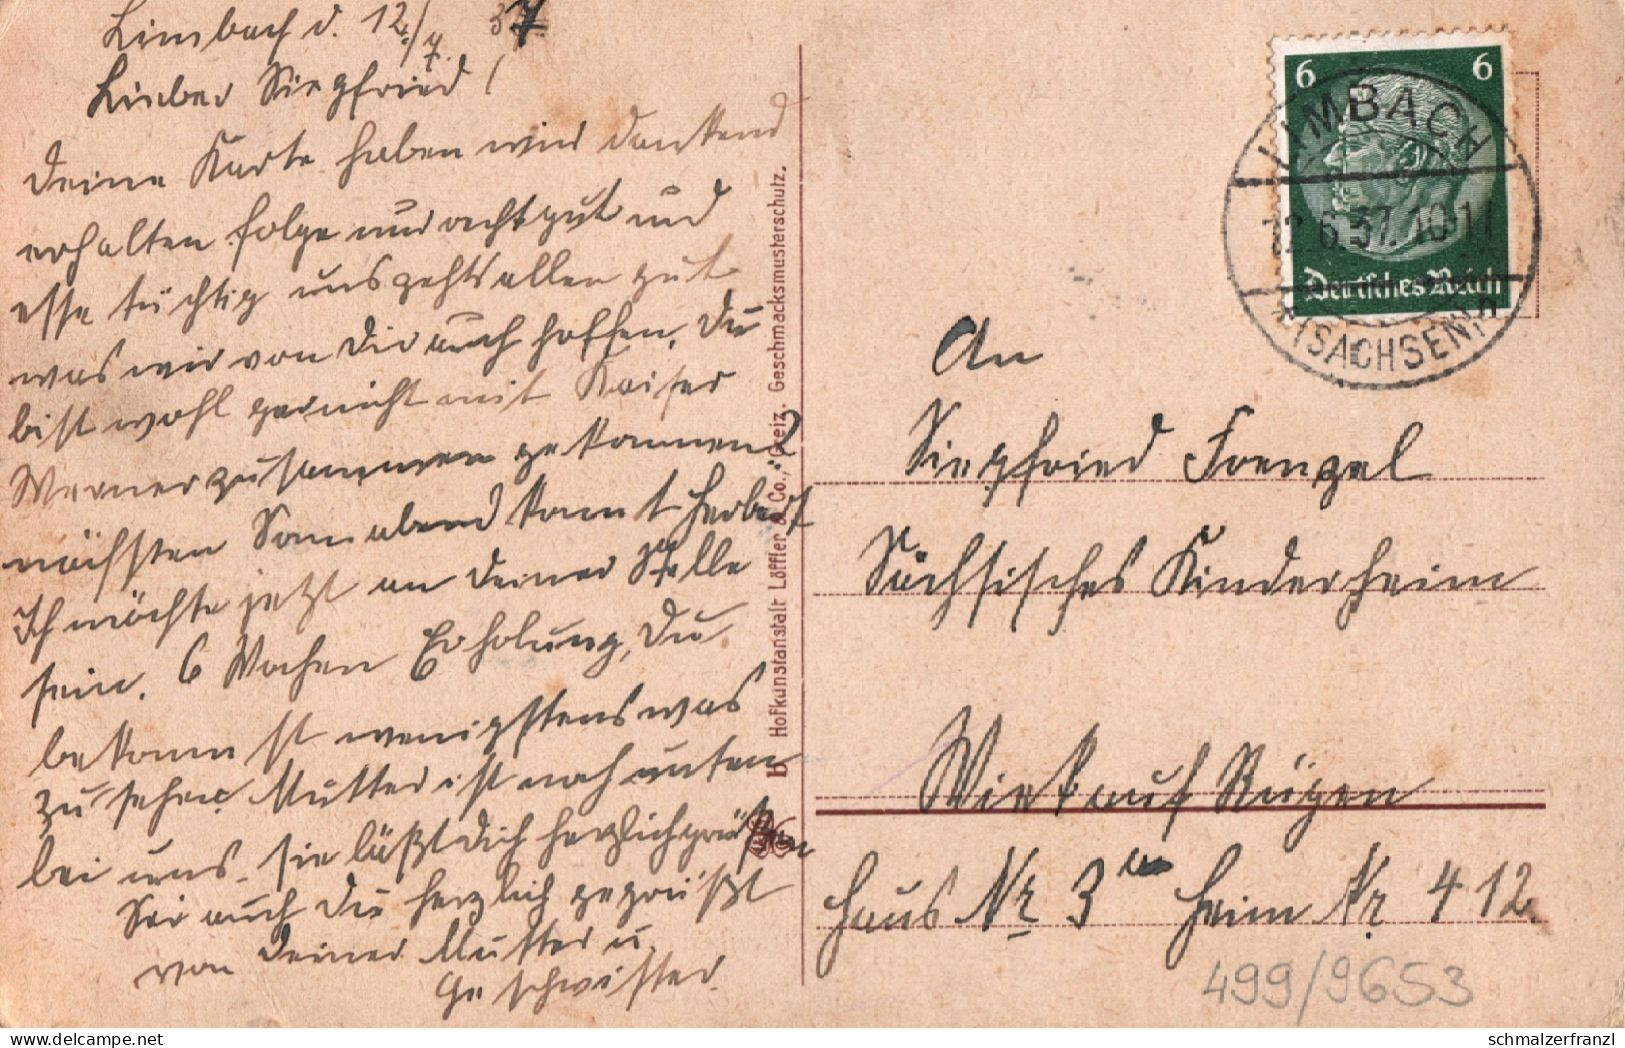 Limbach d. 12./7. 37
Lieber Siegfried!
Deine Karte haben wir dankend
erhalten folge nur recht gut und
esse tüchtig uns gehts allen gut
was wir von Dir auch hoffen, Du
bist wohl gar nicht mit Kaiser
Werner zusammen gekommen?
nächsten Sonnabend kommt Herbert
Ich möchte jetzt an Deiner Stelle
sein. 6 Wochen Erholung, Du
bekommst wenigstens was
zu sehen. Mutter ist noch unten
bei uns. sie läßt Dich herzlich grüßen
Sei auch Du herzlich gegrüßt
von Deiner Mutter u.
Geschwister.
b Hofkunstanstalt Löffler & Co., Greiz. Geschmacksmusterschutz.
6 6
Deutsches Reich
LIMBACH
12.6.37.10-11
(SACHSEN)
An
Siegfried Frenzel
Sächsisches Kinderheim
Wiek auf Rügen
Haus Nr 3 Heim Nr. 412.
499/9653
schmalzerfranzl